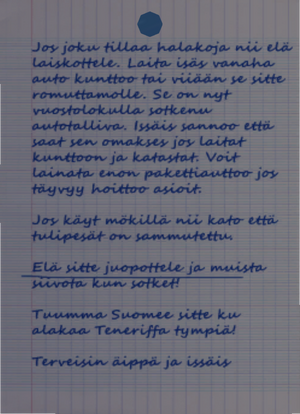 Jos joku tillaa halakoja nii elä
laiskottele. Laita isäs vanaha
auto kunttoo tai viiään se sitte
romuttamolle. Se on nyt
vuostolokulla sotkenu
autotalliva. Issäis sannoo että
saat sen omakses jos laitat
kunttoon ja katastat. Voit
lainata enon pakettiauttoo jos
täyvyy hoittoo asioit.

Jos käyt mökillä nii kato että
tulipesät on sammutettu.

Elä sitte juopottele ja muista
siivota kun sotket!

Tuumma Suomee sitte ku
alakaa Teneriffa tympiä!

Terveisin äippä ja issäis